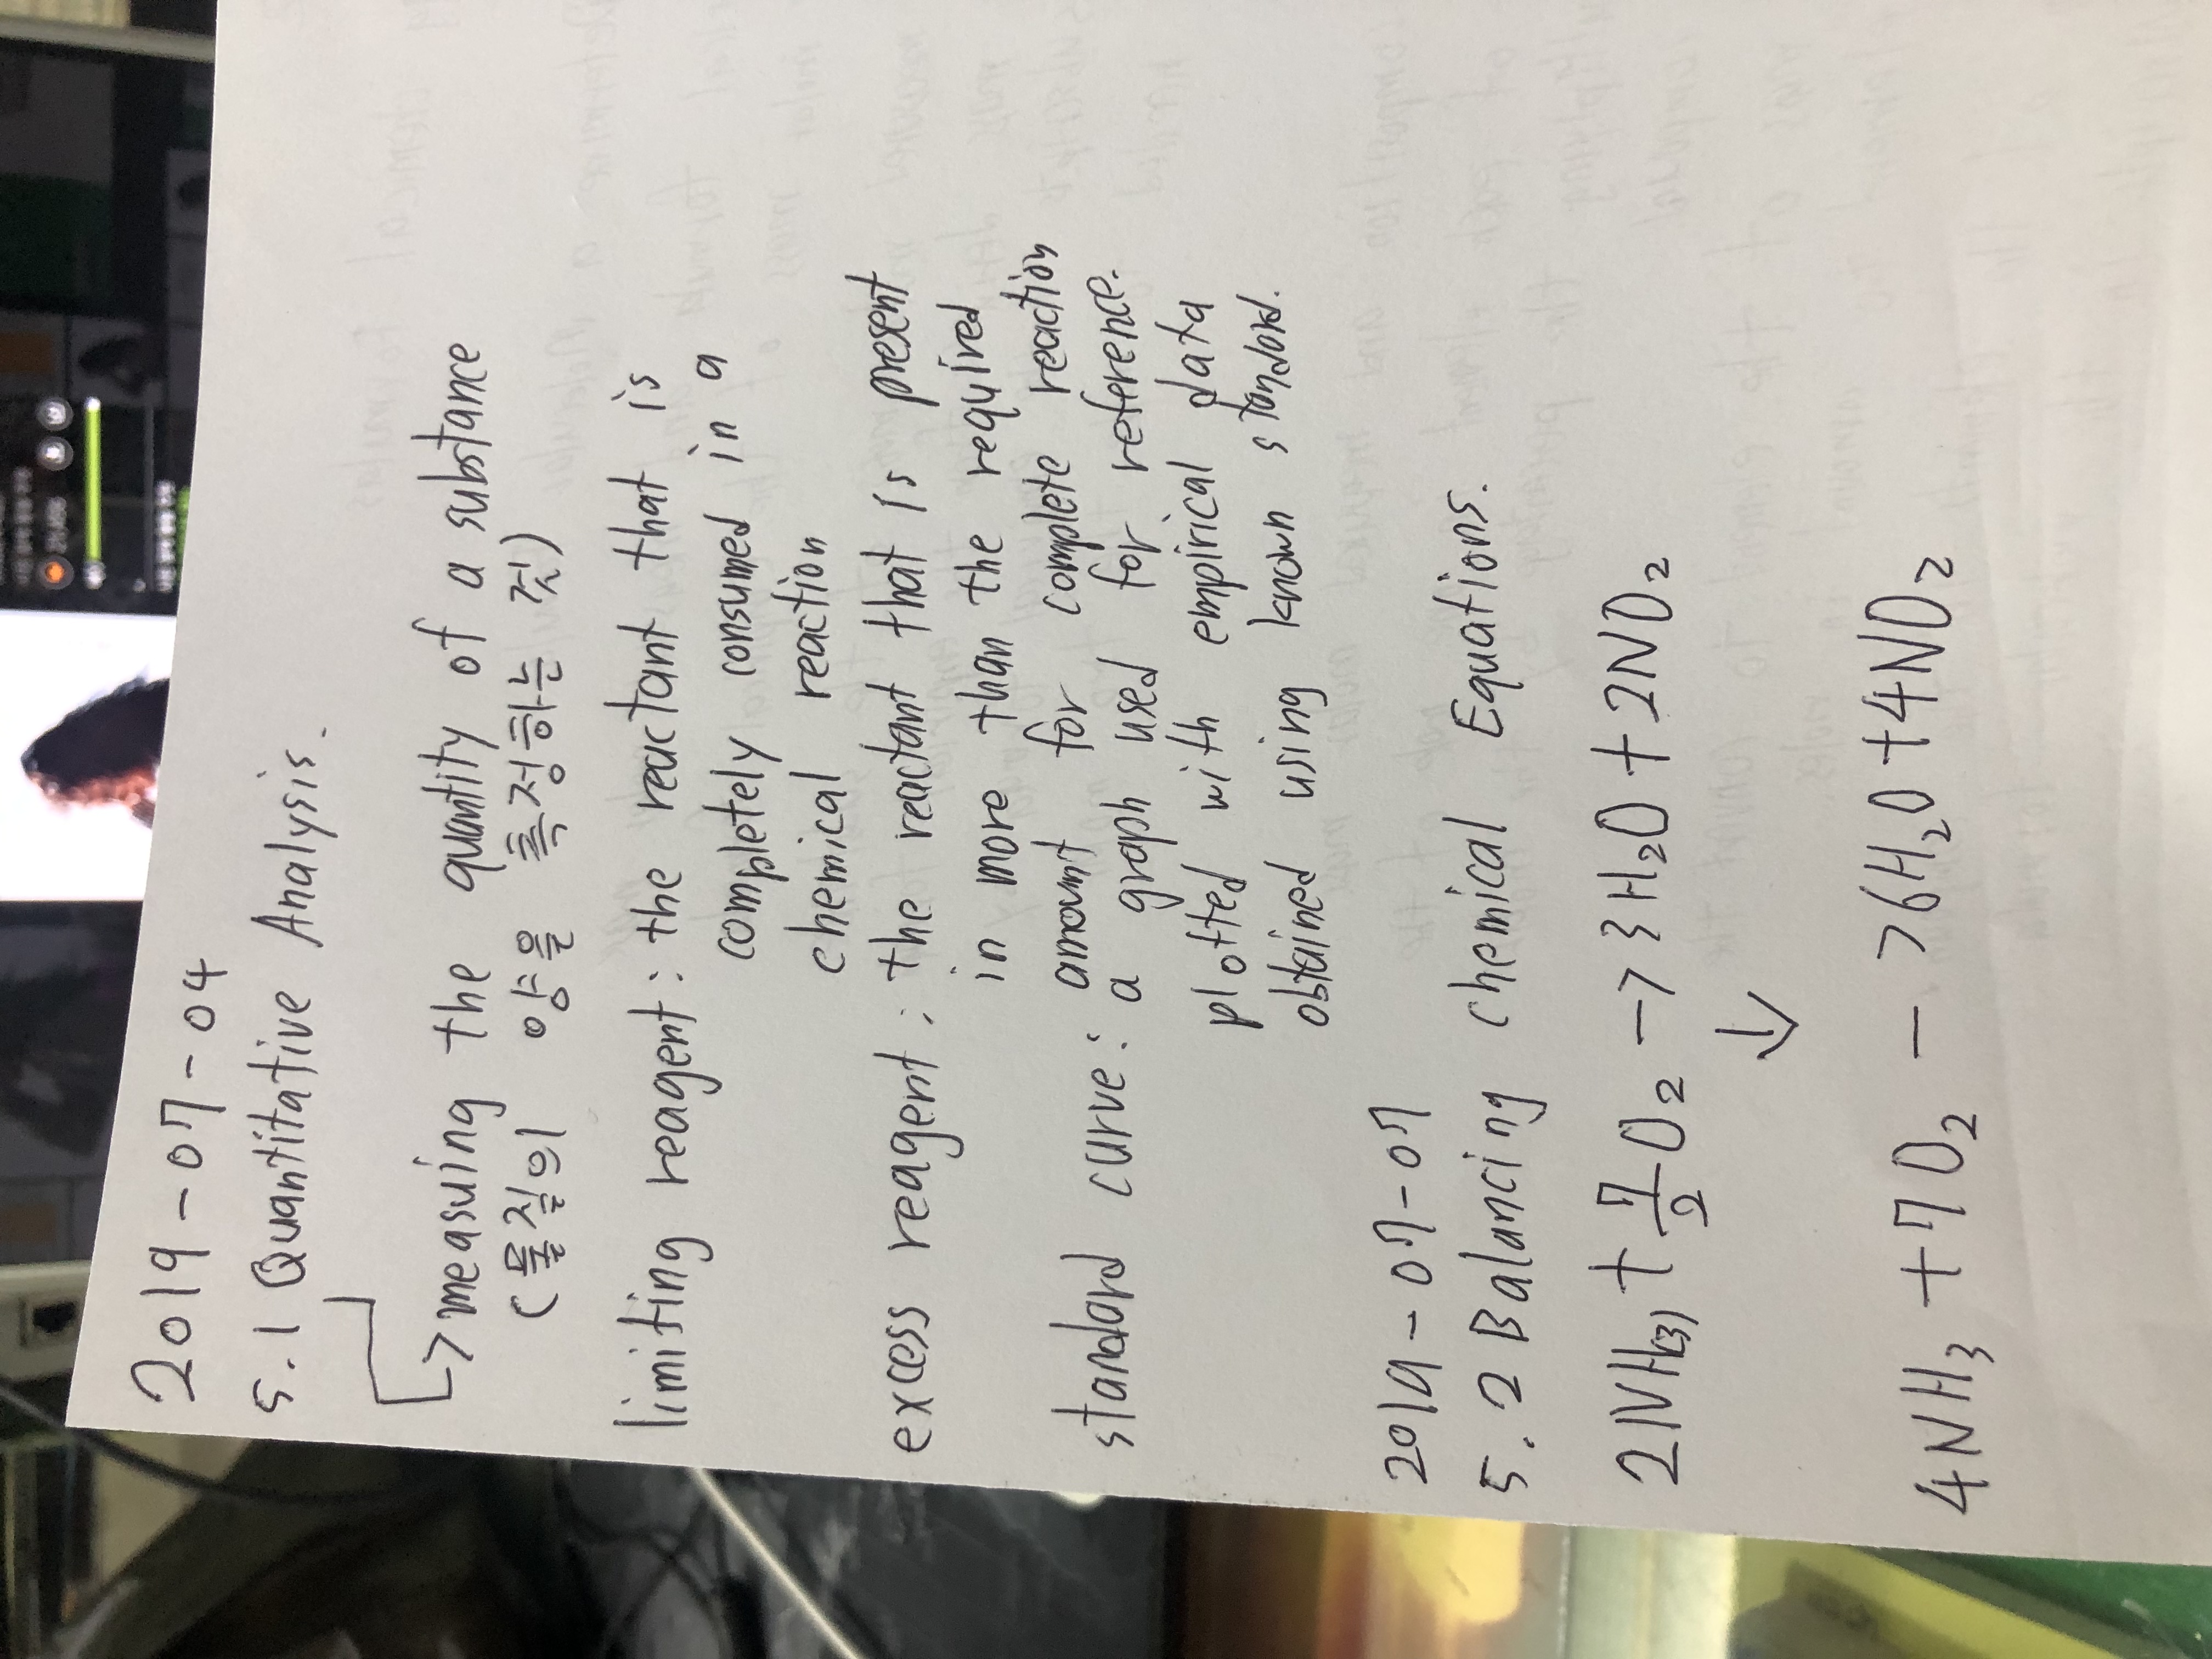 2019-07-04
5.1 Quantitative Analysis.
→ measuing the quantity of a substance
(물질의 양을 측정하는 것)
limiting reagent: the reactant that is
completely consumed in a
chemical reaction
excess reagent: the reactant that is present
in more than the required
amount for complete reaction
standard curve: a graph used for reference.
plotted with empirical data
obtained using known standard.
2019-07-07
5.2 Balancing chemical Equations.
2NH(3) + 7/2 O2 -> 3H2O + 2NO2
↓
4NH3 + 7O2 -> 6H2O + 4NO2